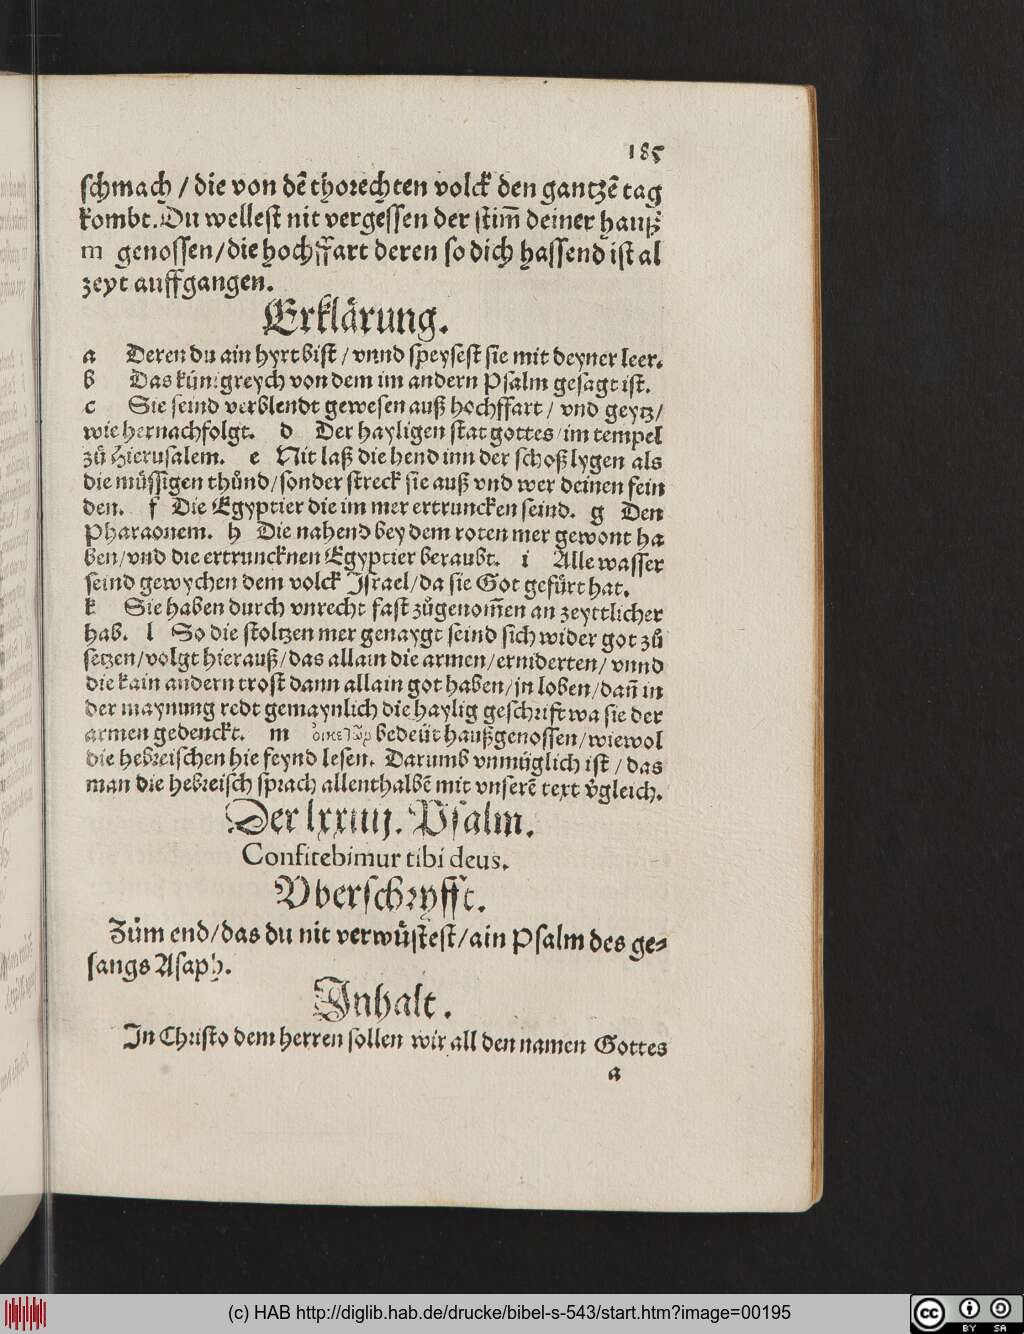 185
schmach / die von dē thorechten volck den gantzē tag
kombt. Du wellest nit vergessen der stim̄ deiner hauß
m genossen / die hochffart deren so dich hassend ist al
zeyt auffgangen.
Erklärung.
a Deren du ain hyrt bist / vnnd speysest sie mit deyner leer.
b Das künigreych von dem im andern Psalm gesagt ist.
c Sie seind verblendt gewesen auß hochffart / vnd geytz /
wie hernachfolgt. d Der hayligen stat gottes / im tempel
zů Hierusalem. e Nit laß die hend inn der schoß lygen als
die müssigen thůnd / sonder streck sie auß vnd wer deinen fein
den. f Die Egyptier die im mer ertruncken seind. g Den
Pharaonem. h Die nahend bey dem roten mer gewont ha
ben / vnd die ertruncknen Egyptier beraubt. i Alle wasser
seind gewychen dem volck Israel / da sie Got gefürt hat.
k Sie haben durch vnrecht fast zůgenom̄en an zeyttlicher
hab. l So die stoltzen mer genaygt seind sich wider got zů
setzen / volgt hierauß / das allain die armen / erniderten / vnnd
die kain andern trost dann allain got haben / jn loben / dan̄ in
der maynung redt gemaynlich die haylig geschrift wa sie der
armen gedenckt. m bedeüt haußgenossen / wiewol
die hebreischen hie feynd lesen. Darumb vnmüglich ist / das
man die hebreisch sprach allenthalbē mit vnserē text v̊gleich.
Der lxxiiij. Psalm.
Confitebimur tibi deus.
Vberschryfft.
Zům end / das du nit verwüstest / ain Psalm des ge⸗
sangs Asaph.
Inhalt.
In Christo dem herren sollen wir all den namen Gottes
a
(c) HAB http://diglib.hab.de/drucke/bibel-s-543/start.htm?image=00195
cc BY SA